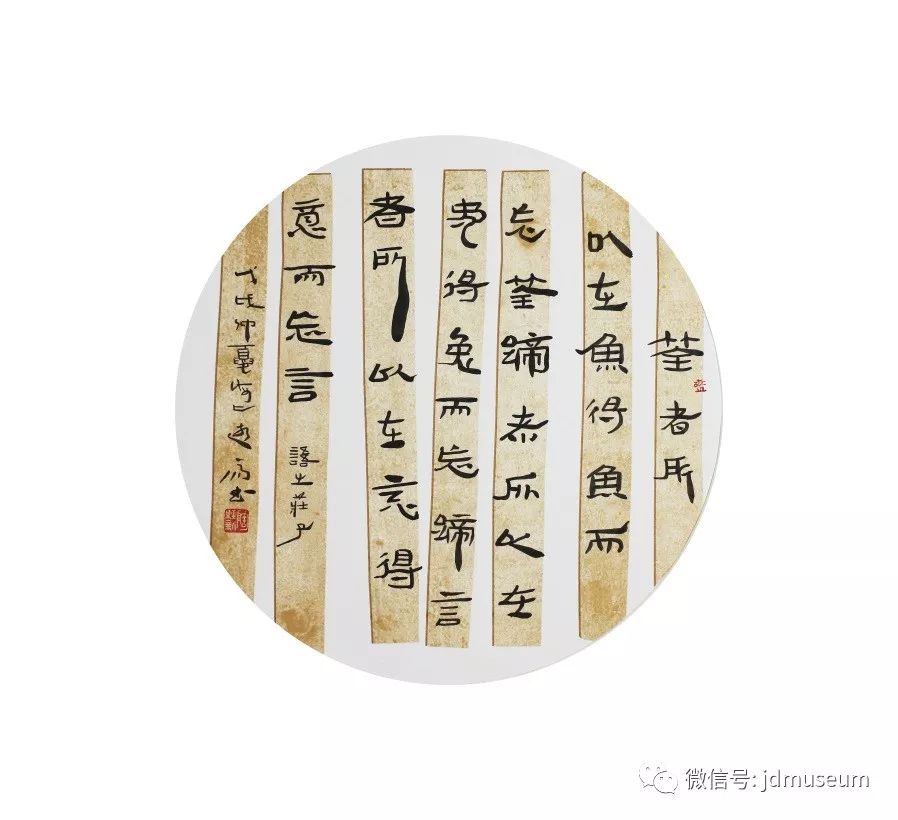 荃者所
以在魚得魚而
忘荃蹄者所以在
兔得兔而忘蹄言
者所以在意得
意而忘言
語出莊子
戊戌仲夏書
微信号: jdmuseum